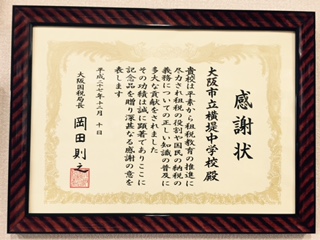 感謝状
大阪市立横堤中学校殿
貴校は平素から租税教育の推進に
尽力され租税の役割や国民の納税の
義務についての正しい知識の普及に
多大な貢献をされました
その功績は誠に顕著でありここに
記念品を贈り深甚なる感謝の意を
表します
平成二十七年十一月十日
大阪国税局長
岡田則之